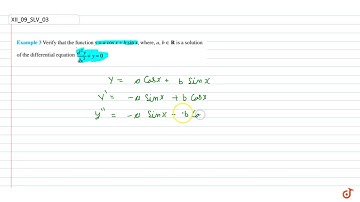 XII_09_SLV_03
Example 3 Verify that the function y = a cos x + b sin x, where, a, b ∈ R is a solution
of the differential equation d²y/dx² + y = 0
y = a Cos x + b Sin x
y' = -a Sin x + b Cos x
y'' = -a Sin x - b Co